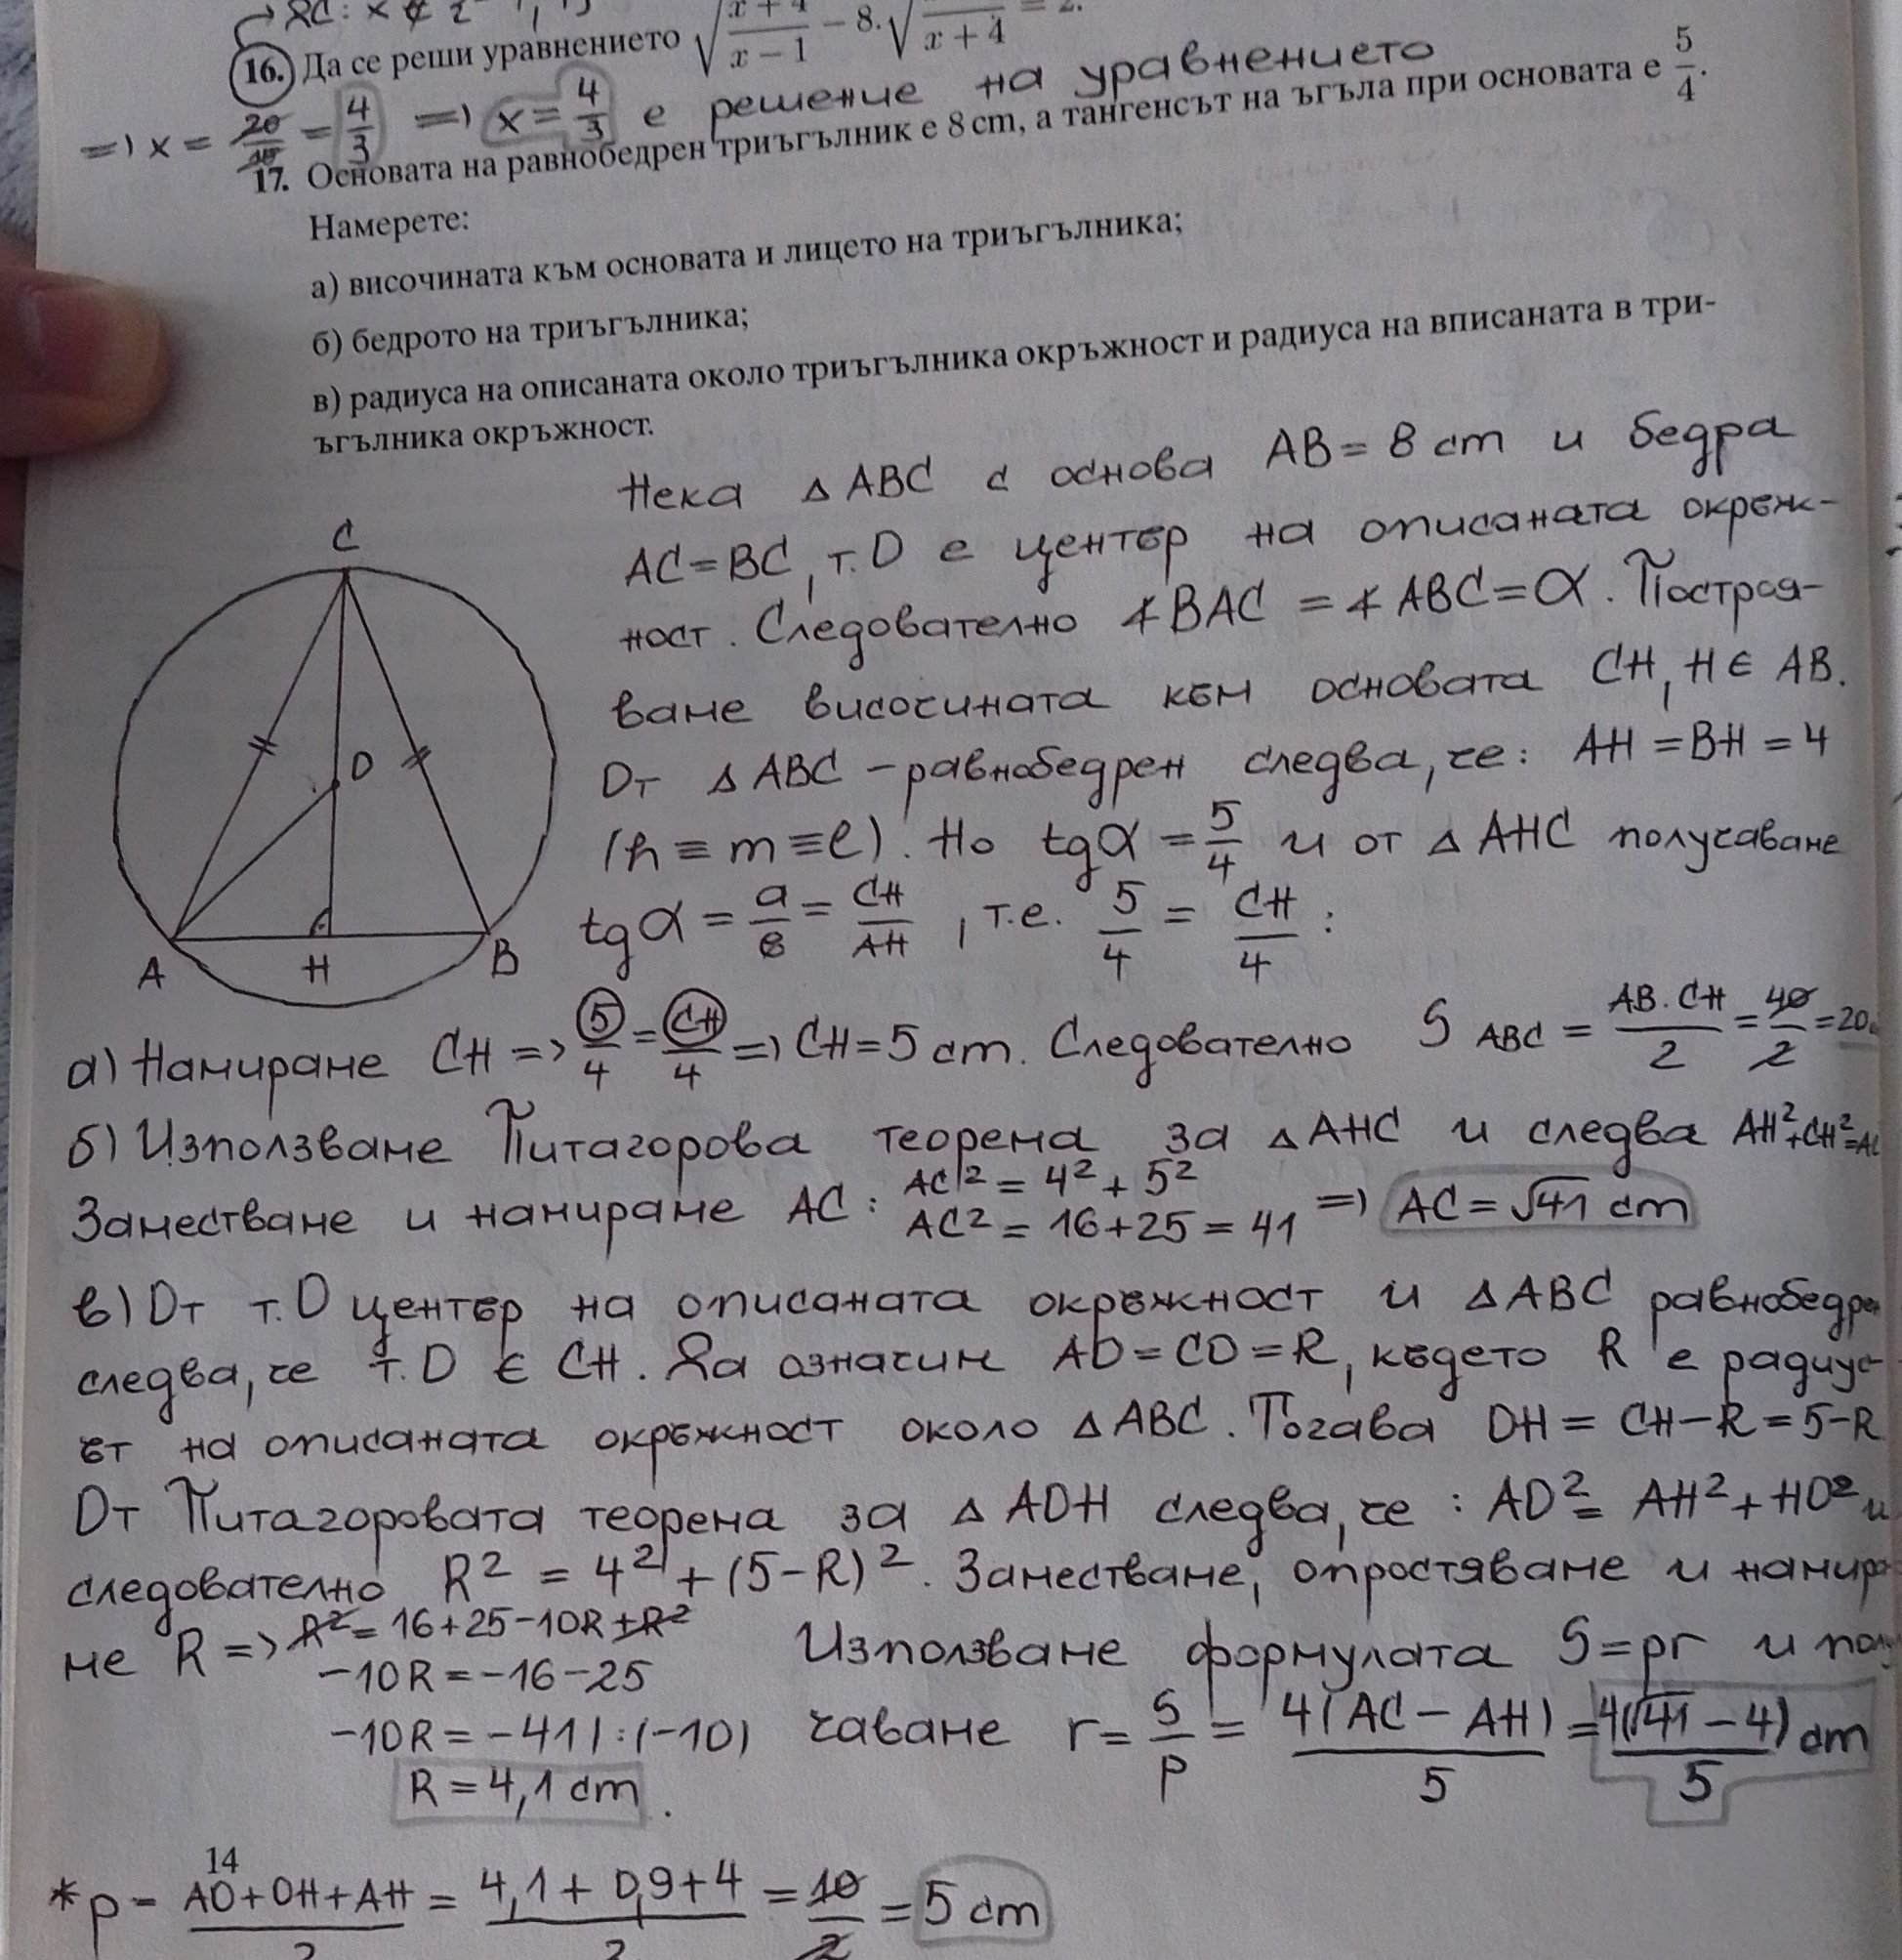 16. Да се реши уравнението √(x+4)/(x−1) − 8.√ /(x+4) = 2.
=> x = 20/15 = 4/3 => x = 4/3 е решение на уравнението
17. Основата на равнобедрен триъгълник е 8 cm, а тангенсът на ъгъла при основата е 5/4.
Намерете:
а) височината към основата и лицето на триъгълника;
б) бедрото на триъгълника;
в) радиуса на описаната около триъгълника окръжност и радиуса на вписаната в три-
ъгълника окръжност.
Нека △ABC с основа AB = 8 cm и бедра
AC = BC, т. O е център на описаната окръж-
ност. Следователно ∢BAC = ∢ABC = α. Построя-
ваме височината към основата CH, H ∈ AB.
От △ABC – равнобедрен следва, че: AH = BH = 4
(h ≡ m ≡ l). Но tgα = 5/4 и от △AHC получаваме
tgα = a/b = CH/AH, т.е. 5/4 = CH/4 :
C
O
A
H
B
а) Намираме CH => 5/4 = CH/4 => CH = 5 cm. Следователно S ABC = AB.CH/2 = 40/2 = 20
б) Използваме Питагорова теорема за △AHC и следва AH²+CH²=AC
Заместваме и намираме AC: AC² = 4² + 5²
AC² = 16+25 = 41 => AC = √41 cm
в) От т. O център на описаната окръжност и △ABC равнобедрен
следва, че т. O ∈ CH. Да означим AO = CO = R, където R е радиус-
ът на описаната окръжност около △ABC. Тогава OH = CH – R = 5–R
От Питагоровата теорема за △AOH следва, че: AO² = AH² + HO² и
следователно R² = 4² + (5–R)². Заместваме, опростяваме и намира-
ме R => R² = 16+25–10R+R²
–10R = –16–25
–10R = –41 |:(–10)
R = 4,1 cm.
Използваме формулата S=pr и полу-
чаваме r = S/p = 4(AC – AH)/5 = 4(√41 – 4)/5 cm
14
*p = AO+OH+AH/2 = 4,1+0,9+4/2 = 10/2 = 5 cm